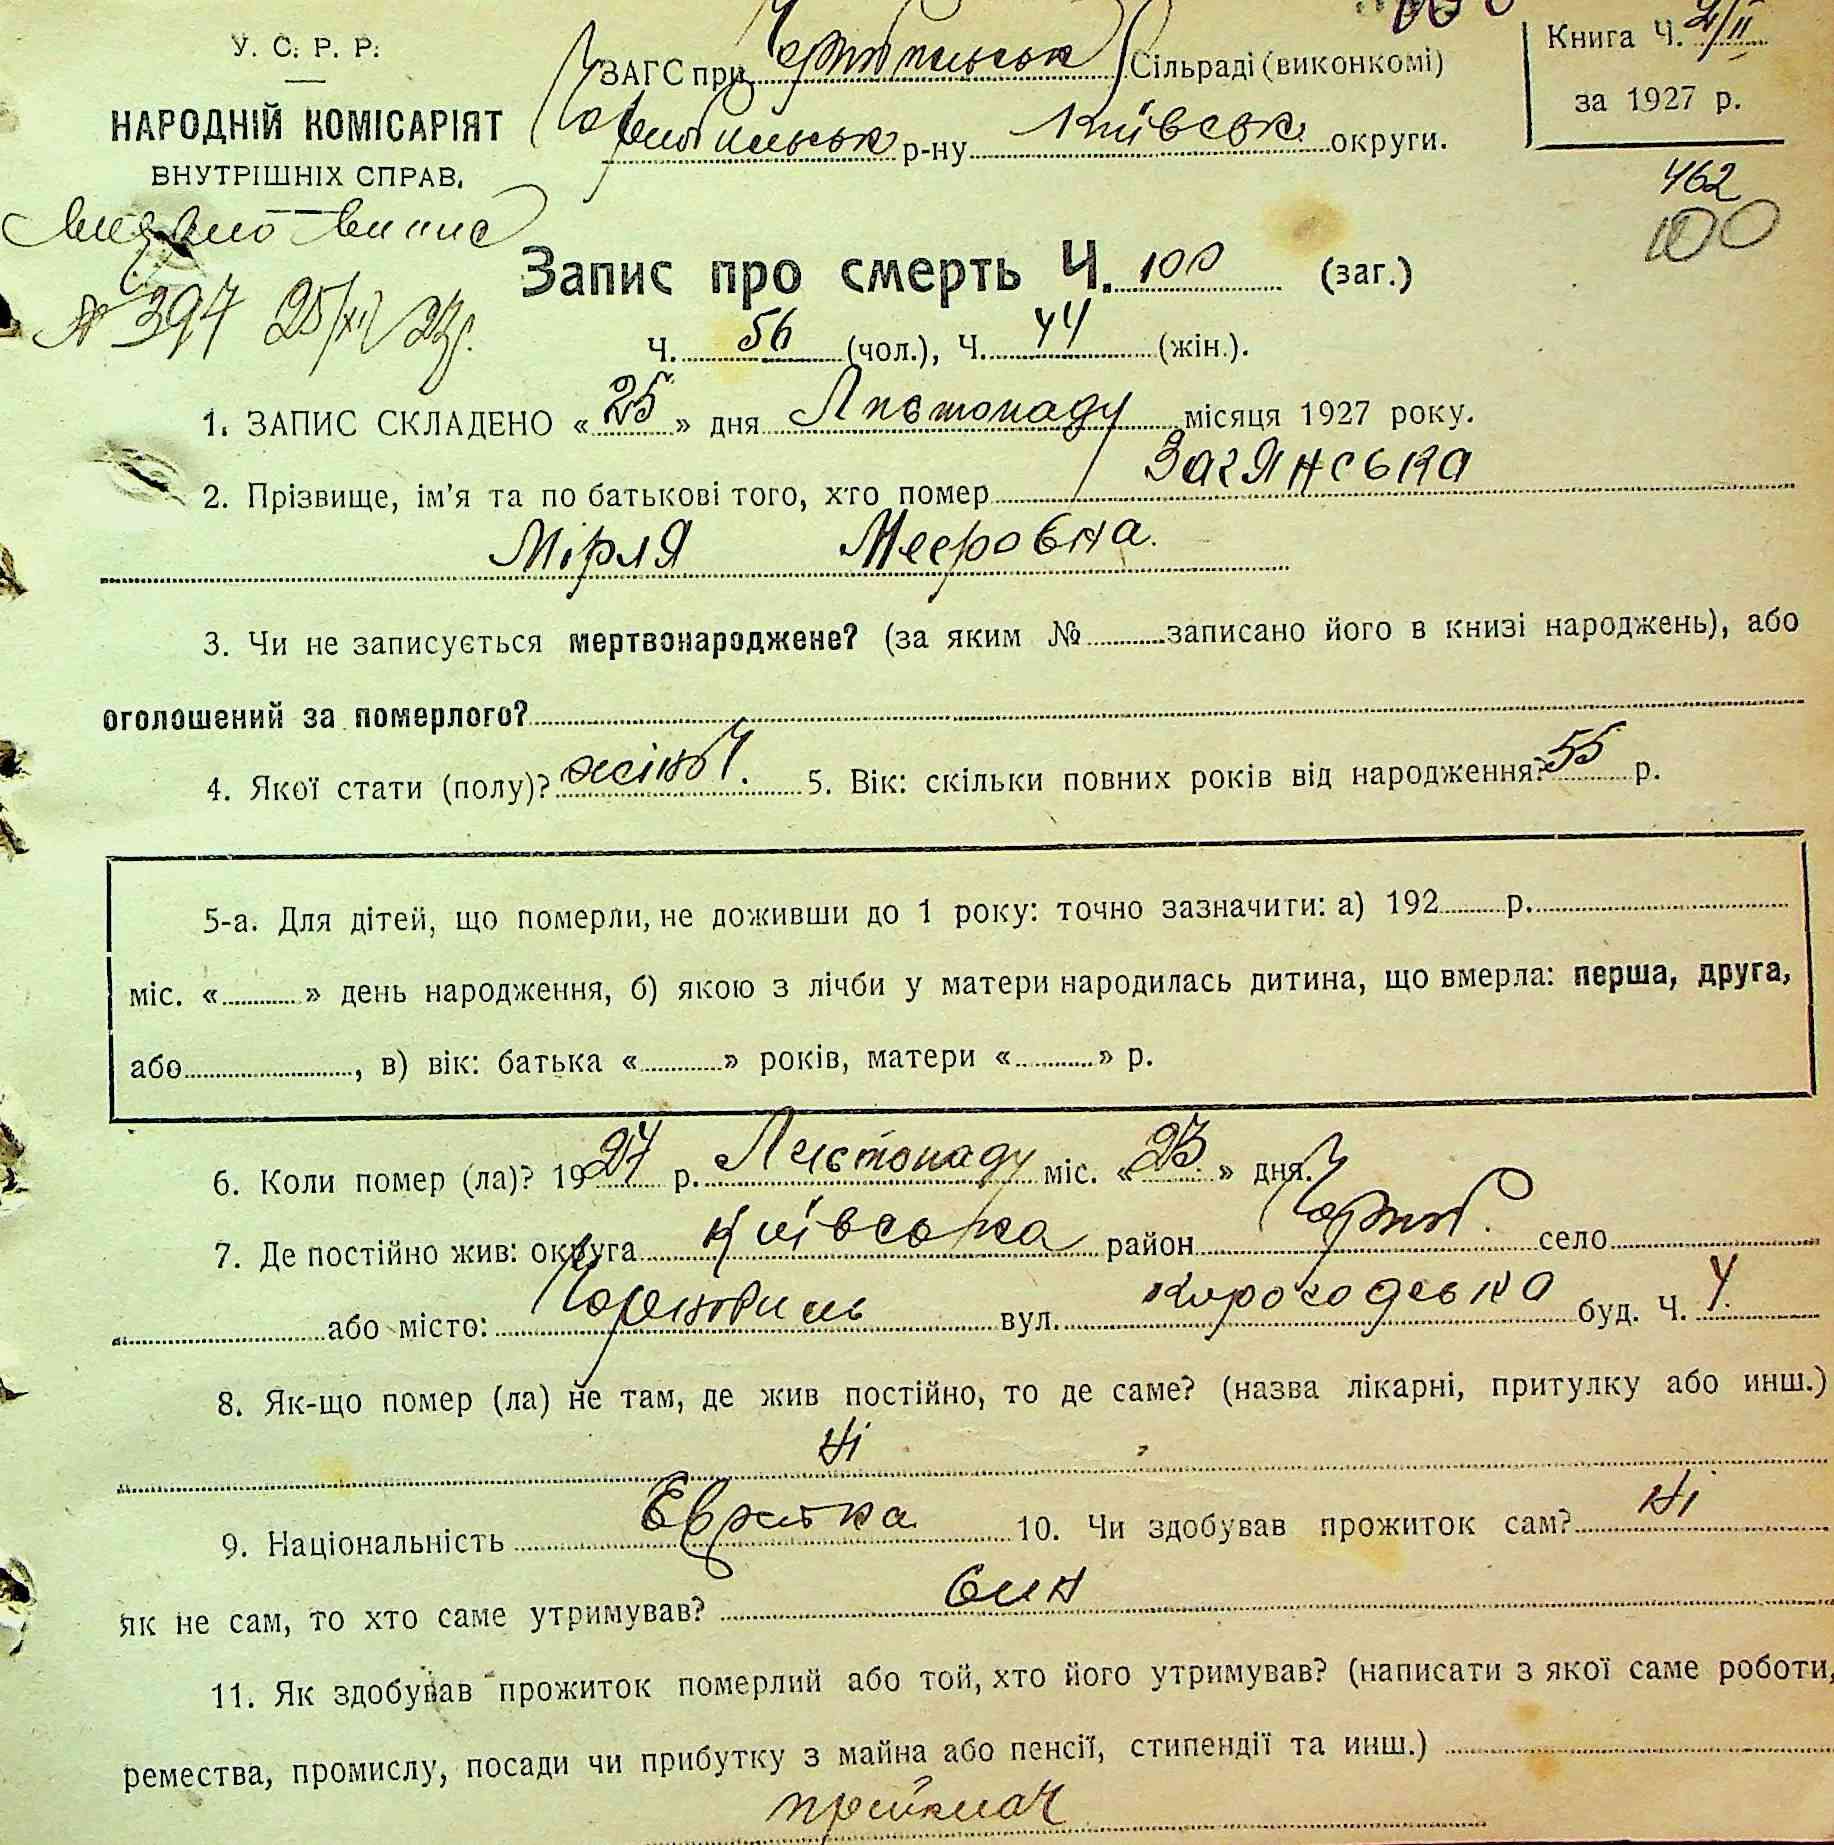 У. С. Р. Р.
НАРОДНІЙ КОМІСАРІЯТ
ВНУТРІШНІХ СПРАВ.
Видано випис
№ 394 25/XI 27 р.
ЗАГС при Чорнобильськ Сільраді (виконкомі)
Чорнобильськ р-ну Київськ округи.
Книга Ч. 2/II
за 1927 р.
462
100
Запис про смерть Ч. 100 (заг.)
Ч. 56 (чол.), Ч. 44 (жін.).
1. ЗАПИС СКЛАДЕНО « 25 » дня Листопаду місяця 1927 року.
2. Прізвище, ім'я та по батькові того, хто помер Загянська
Мірля Меєровна.
3. Чи не записується мертвонароджене? (за яким № записано його в книзі народжень), або
оголошений за померлого?
4. Якої стати (полу)? жіноч. 5. Вік: скільки повних років від народження? 55 р.
5-а. Для дітей, що померли, не доживши до 1 року: точно зазначити: а) 192 р.
міс. « » день народження, б) якою з лічби у матери народилась дитина, що вмерла: перша, друга,
або , в) вік: батька « » років, матери « » р.
6. Коли помер (ла)? 1927 р. Листопаду міс. « 23 » дня.
7. Де постійно жив: округа Київська район Чорноб. село
або місто: Чорнобиль вул. Корогодська буд. Ч. 4.
8. Як-що помер (ла) не там, де жив постійно, то де саме? (назва лікарні, притулку або инш.)
Ні
9. Національність Еврейка 10. Чи здобував прожиток сам? Ні
як не сам, то хто саме утримував? син
11. Як здобував прожиток померлий або той, хто його утримував? (написати з якої саме роботи,
ремества, промислу, посади чи прибутку з майна або пенсії, стипендії та инш.)